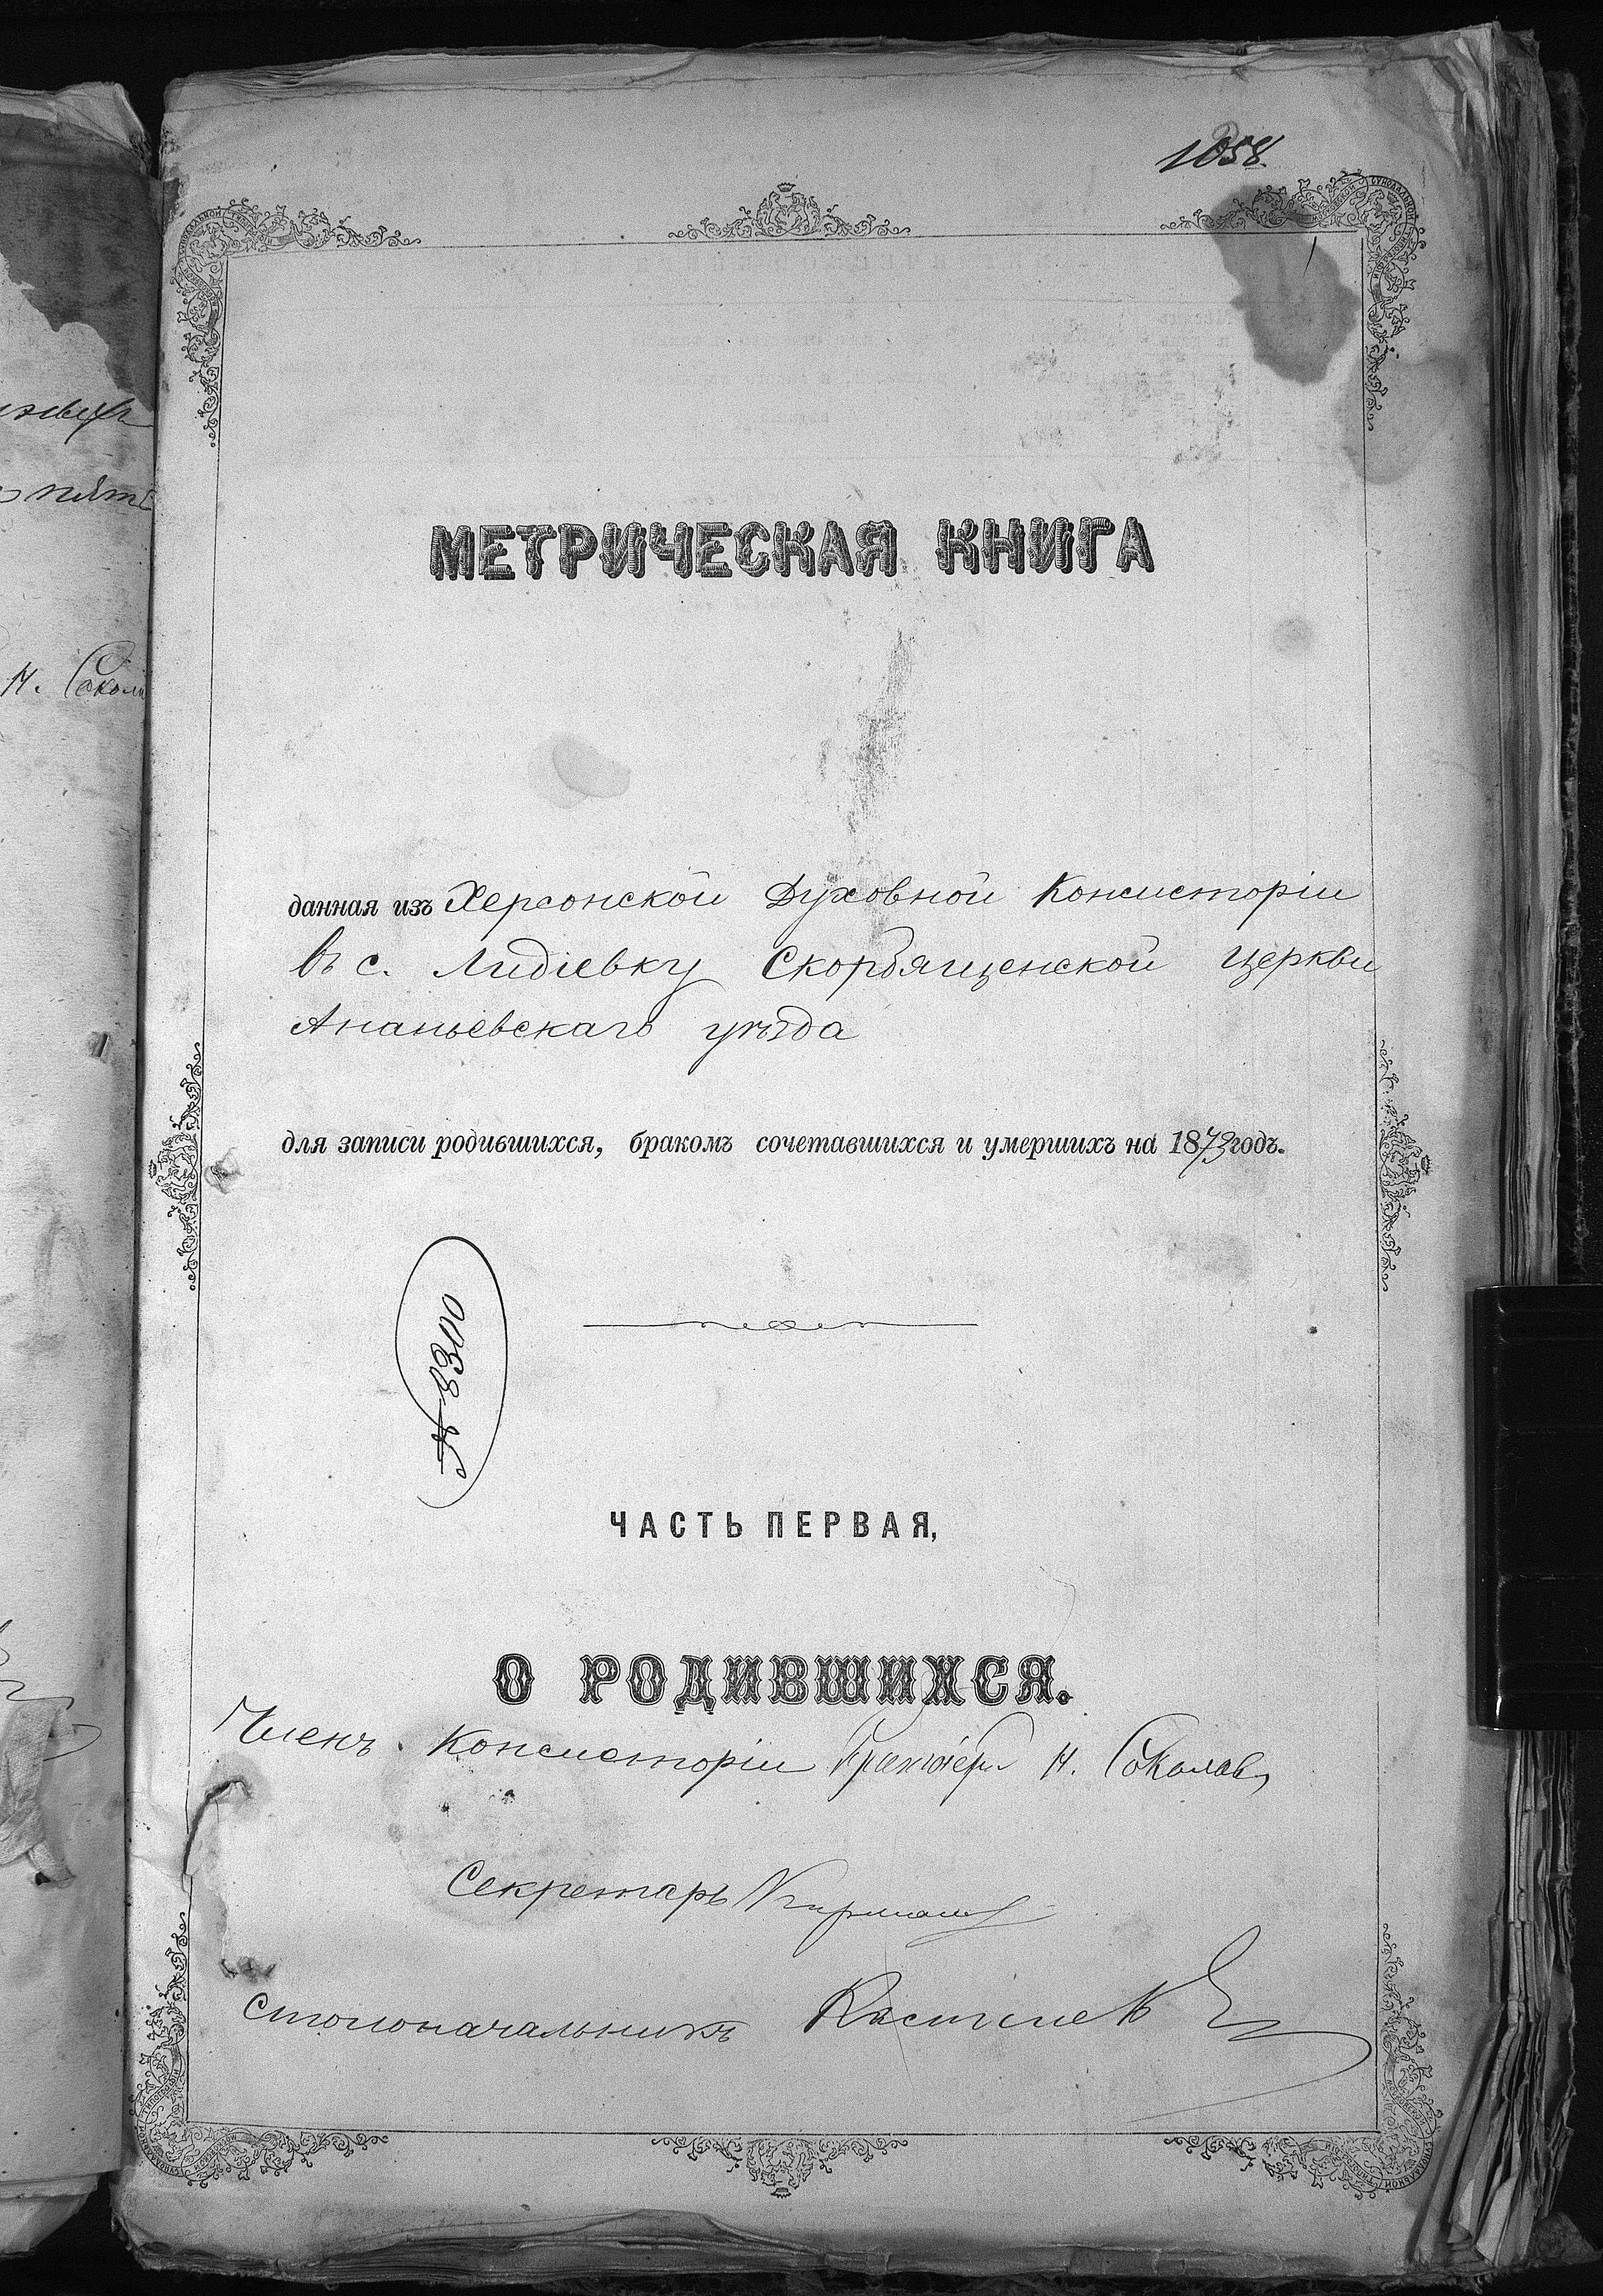 1058.
МЕТРИЧЕСКАЯ КНИГА
данная изъ Херсонской Духовной Консисторіи
въ с. Лидіевку Скорбященской церкви
Ананьевскаго уѣзда
для записи родившихся, бракомъ сочетавшихся и умершихъ на 1873 годъ.
№ 8300
ЧАСТЬ ПЕРВАЯ,
О РОДИВШИХСЯ.
Членъ Консисторіи Н. Соколовъ
Секретарь
Столоначальникъ